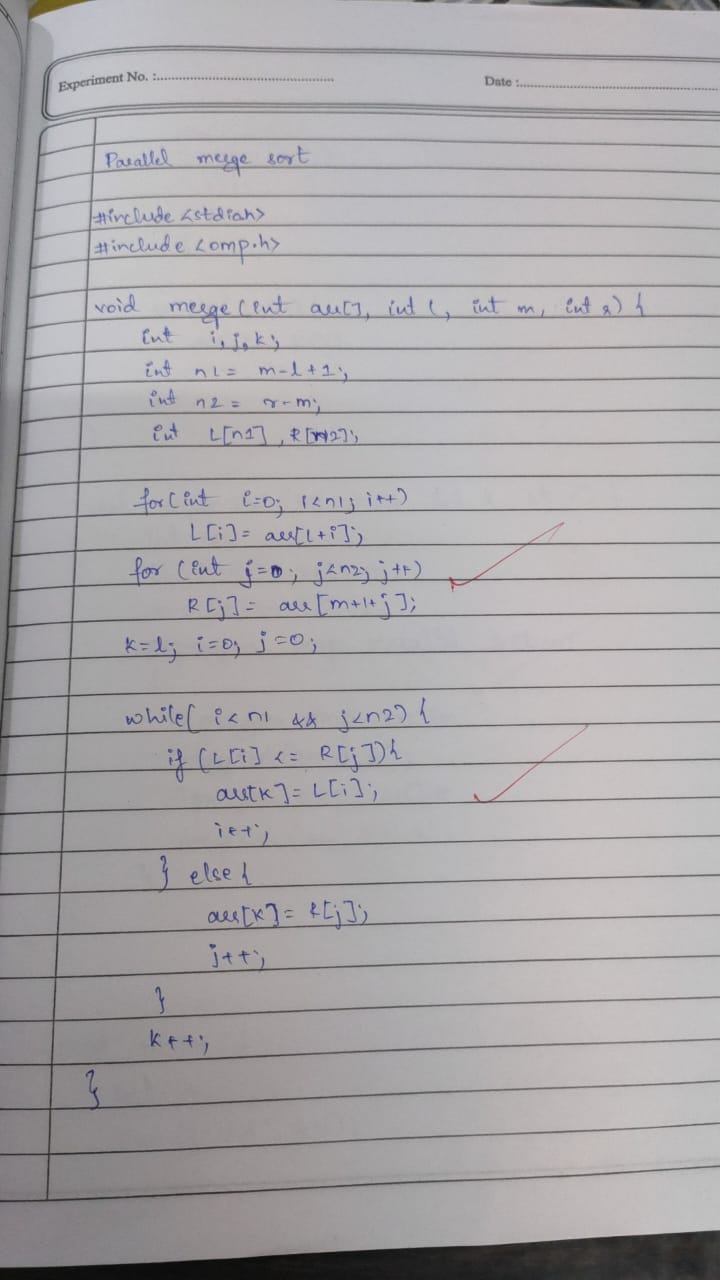 Experiment No. :
Date :
Parallel merge sort
#include <stdio.h>
#include <omp.h>
void merge (int arr[], int l, int m, int r) {
int i, j, k;
int n1 = m-l+1;
int n2 = r-m;
int L[n1], R[n2];
for (int i=0; i<n1; i++)
L[i] = arr[l+i];
for (int j=0; j<n2; j++)
R[j] = arr[m+1+j];
k=l; i=0; j=0;
while( i<n1 && j<n2) {
if (L[i] <= R[j]) {
arr[k] = L[i];
i++;
} else {
arr[k] = R[j];
j++;
}
k++;
}